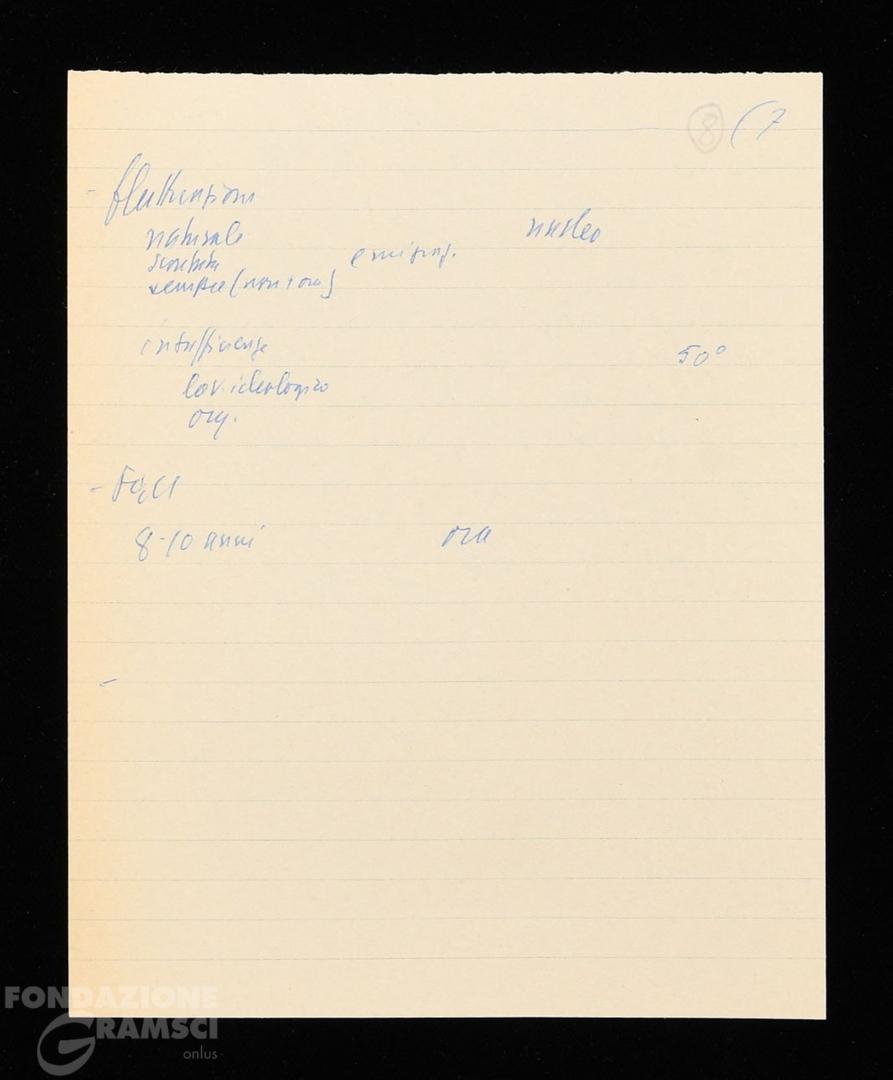 8 (7
- fluttuazioni
naturale nucleo
emigraz.
sempre (non ora)
insufficienze 50°
lav. ideologico
org.
- FGCI
8-10 anni ora
-
FONDAZIONE
GRAMSCI
onlus